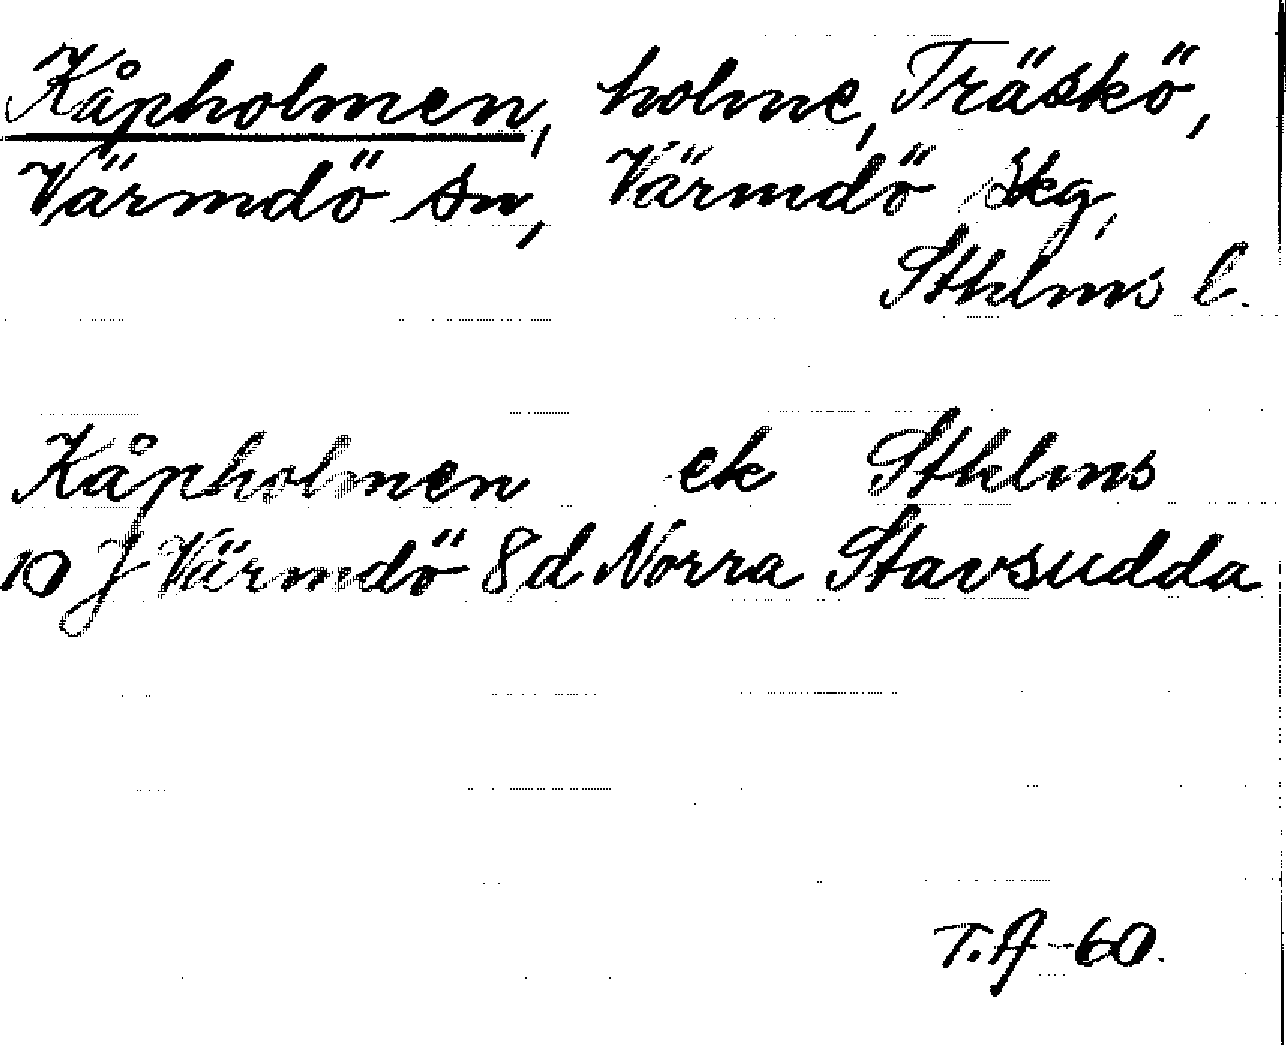 Kåpholmen, holme, Träskö,
Värmdö sn, Värmdö skg,
Sthlms l.
Kåpholmen ek Sthlms
10 J Värmdö 8d Norra Stavsudda
T.A-60.